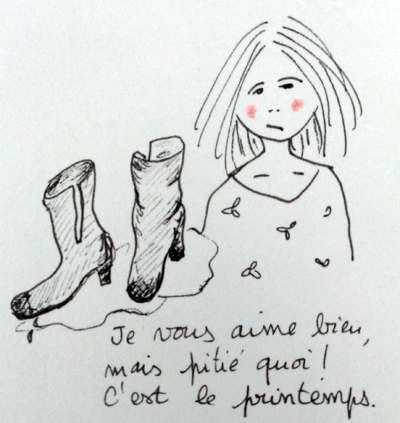 Je vous aime bien,
mais pitié quoi !
C'est le printemps.